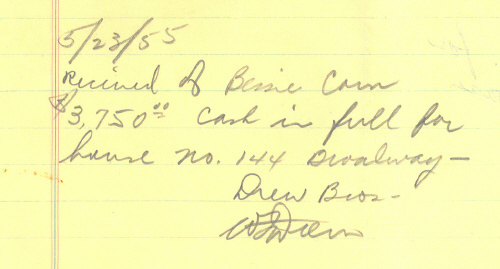 5/23/55
Received of Bessie Corn
$3,750.00 cash in full for
house no. 144 Broadway—
Drew Bros—